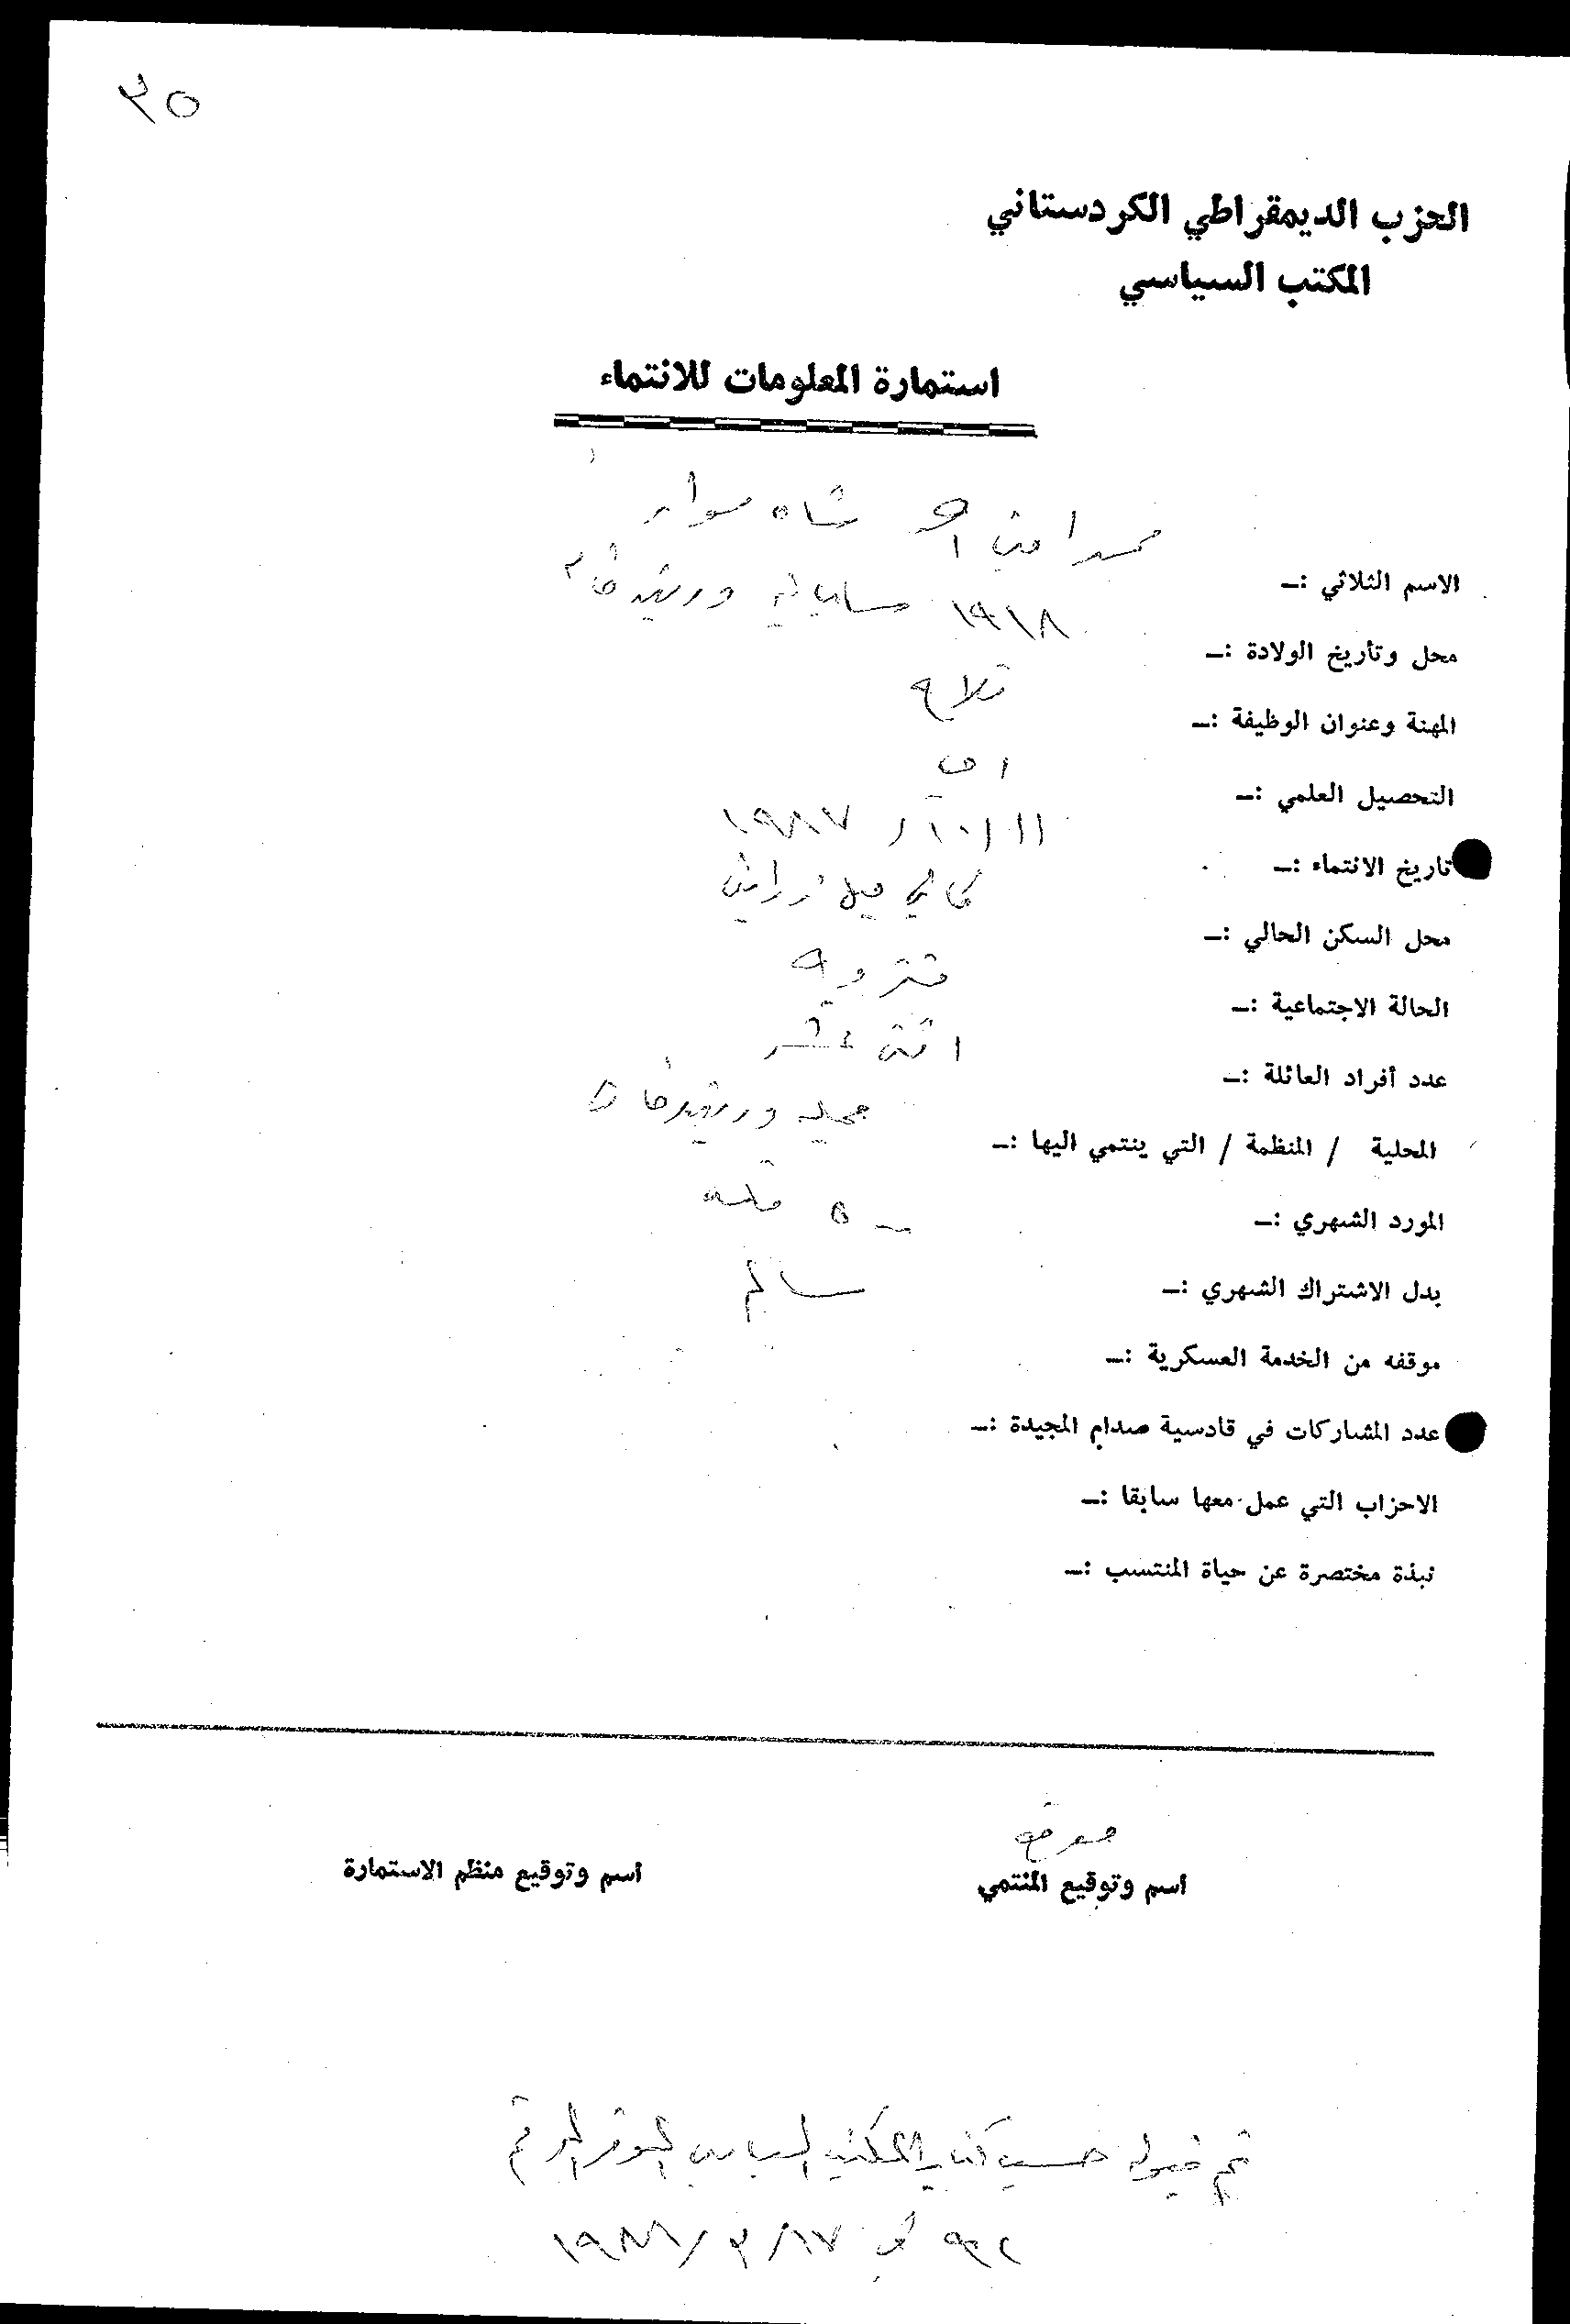 ٣٥
الحزب الديمقراطي الكردستاني
المكتب السياسي
استمارة المعلومات للانتماء
الاسم الثلاثي :ـ محمد امين احمد شاه سوار
محل وتأريخ الولادة :ـ ١٩١٨
المهنة وعنوان الوظيفة :ـ فلاح
التحصيل العلمي :ـ امي
تاريخ الانتماء :ـ ١١/١٠/١٩٨٧
محل السكن الحالي :ـ
الحالة الاجتماعية :ـ متزوج
عدد أفراد العائلة :ـ اثنى عشر
المحلية / المنظمة / التي ينتمي اليها :ـ
المورد الشهري :ـ
بدل الاشتراك الشهري :ـ ٥٠٠ فلس
موقفه من الخدمة العسكرية :ـ سالم
عدد المشاركات في قادسية صدام المجيدة :ـ
الاحزاب التي عمل معها سابقا :ـ
نبذة مختصرة عن حياة المنتسب :ـ
اسم وتوقيع المنتمي
اسم وتوقيع منظم الاستمارة
تم قبوله حسب كتاب المكتب السياسي الموقر المرقم
في ١٧/٣/١٩٨٨